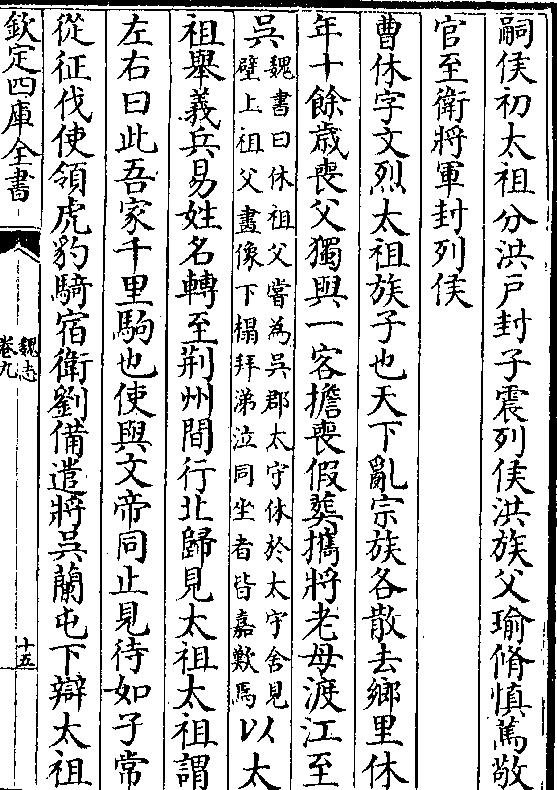 嗣侯初太祖分洪戶封子震列侯洪族父瑜脩慎篤敬
官至衛將軍封列侯
曹休字文烈太祖族子也天下亂宗族各散去鄉里休
年十餘歲喪父獨與一客擔喪假葬攜將老母渡江至
吳魏書曰休祖父嘗為吳郡太守休於太守舍見
壁上祖父畫像下榻拜涕泣同坐者皆嘉歎焉以太
祖舉義兵易姓名轉至荆州間行北歸見太祖太祖謂
左右曰此吾家千里駒也使與文帝同止見待如子常
從征伐使領虎豹騎宿衛劉備遣將吳蘭屯下辯太祖
欽定四庫全書
魏志
卷九
十五